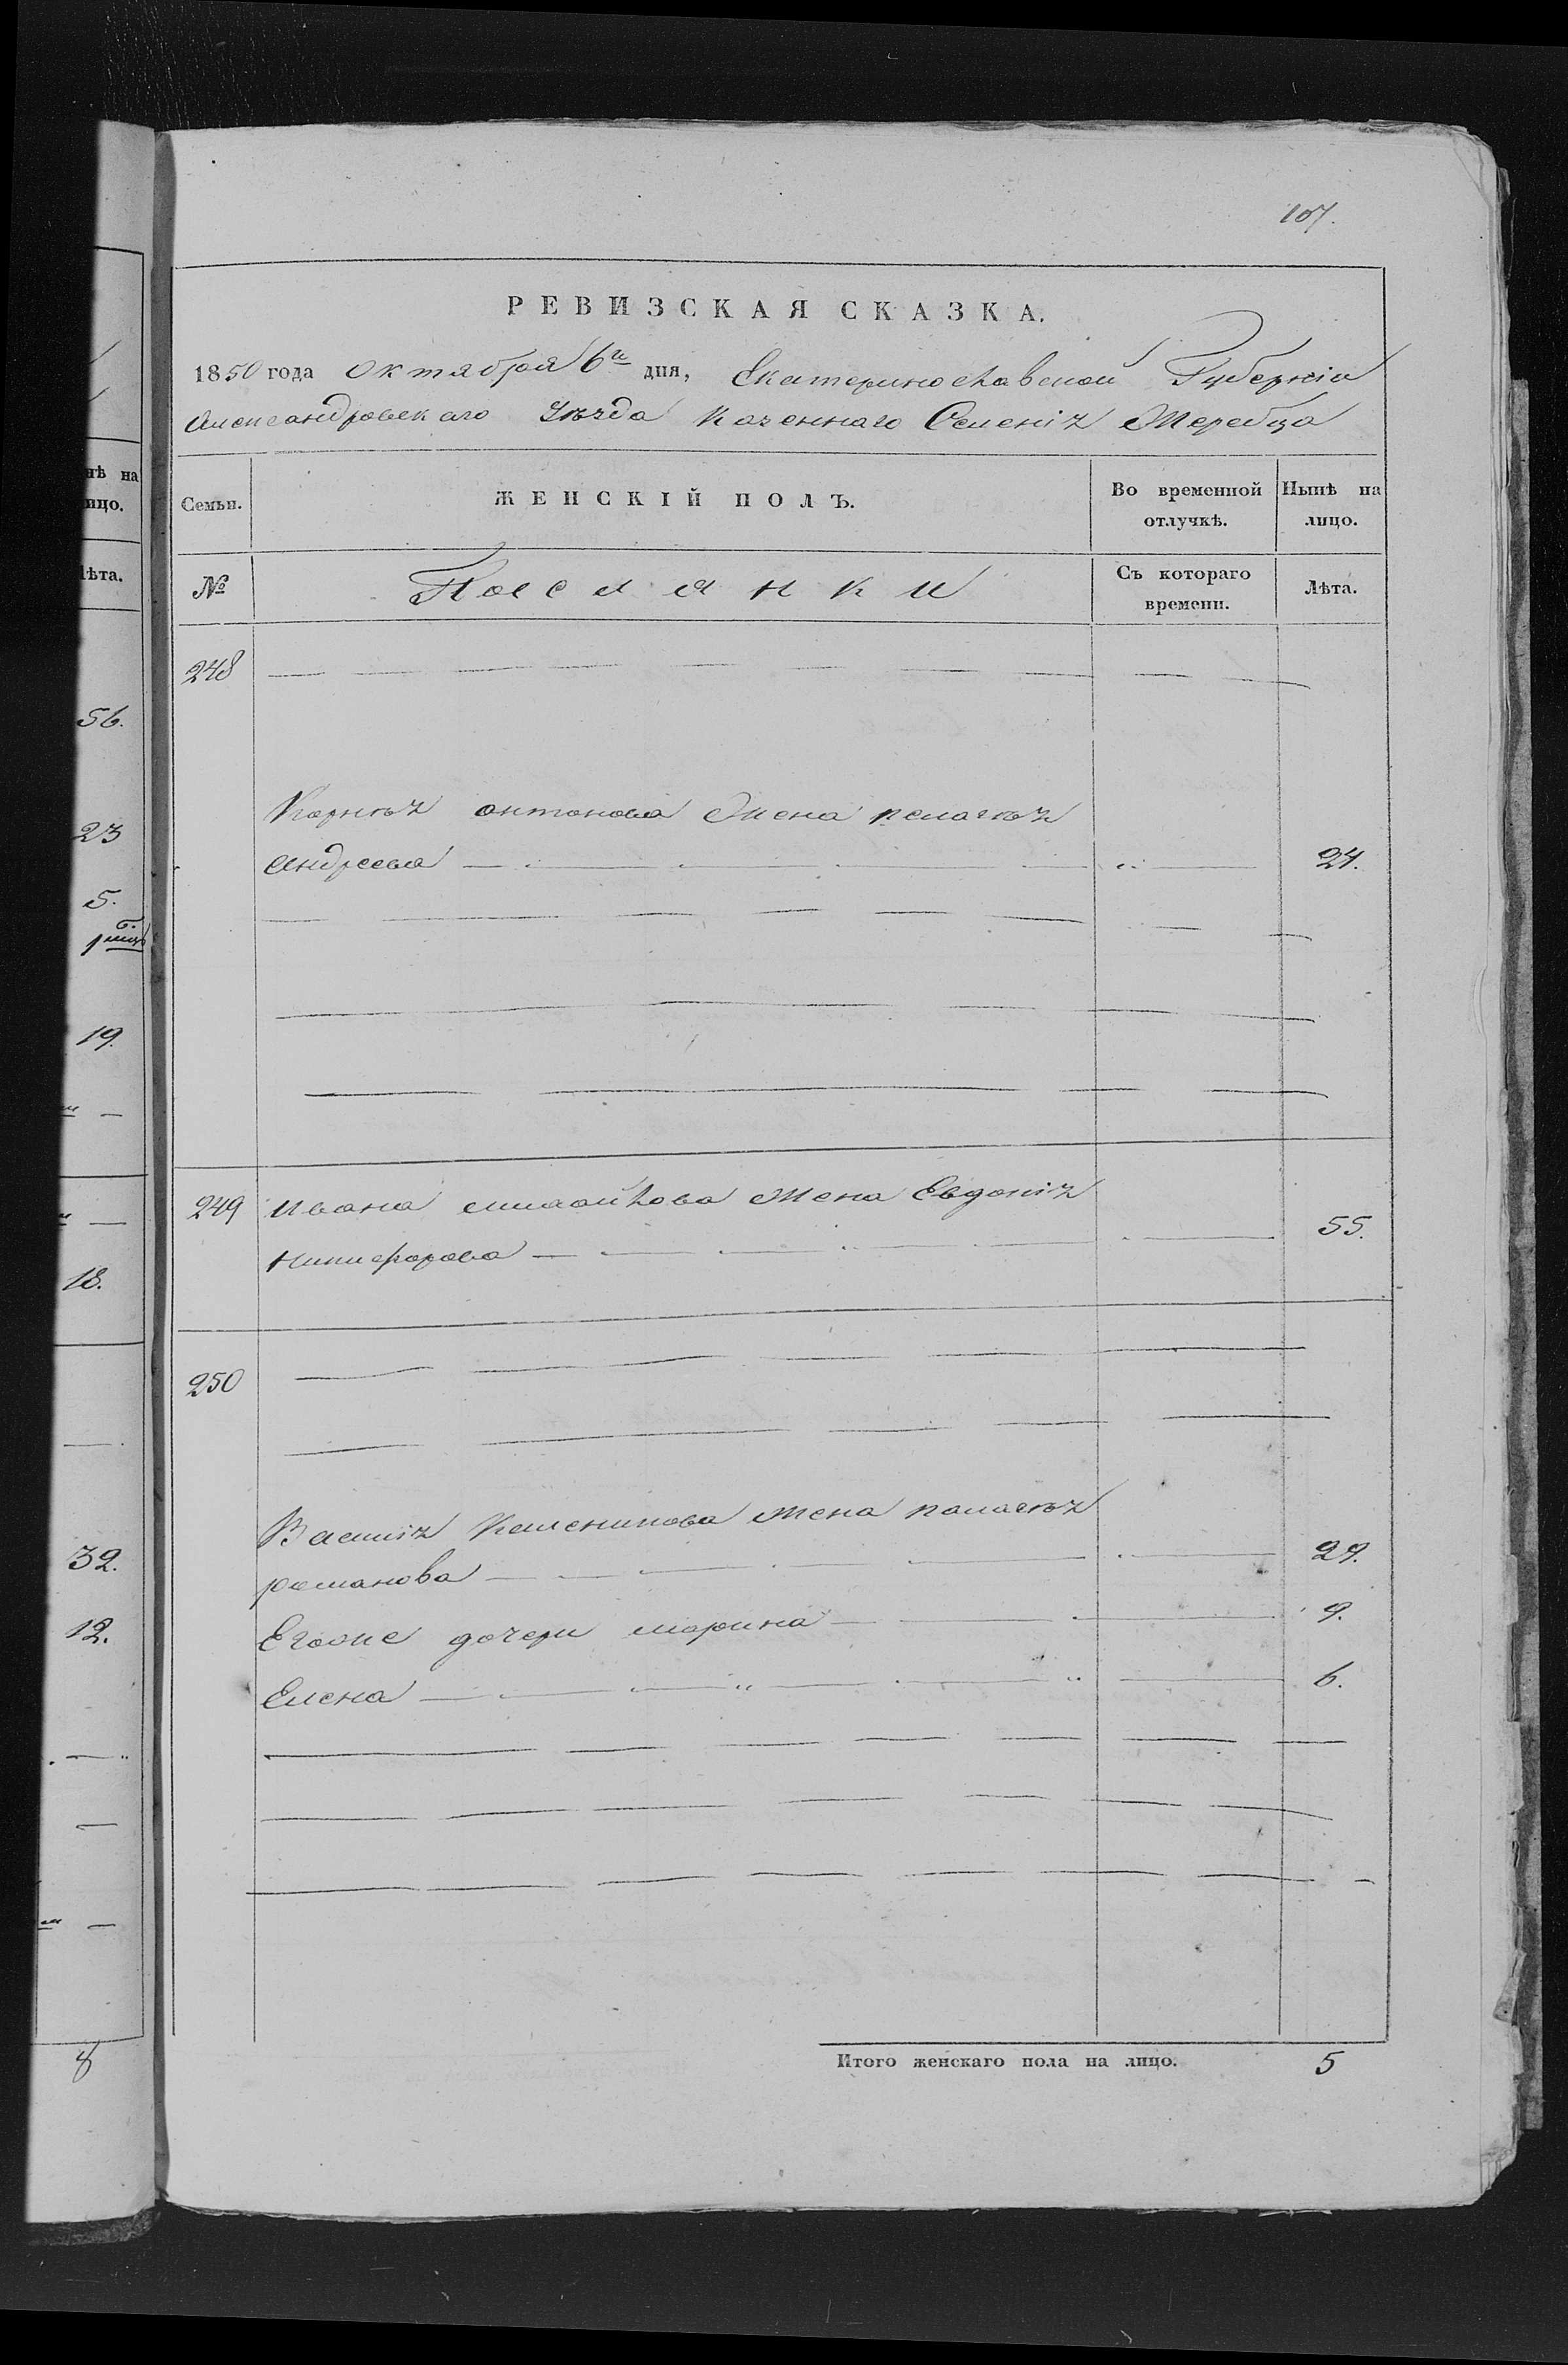 107.
РЕВИЗСКАЯ СКАЗКА.
1850 года октября 6го дня, Екатеринославской Губерніи
Александровскаго уѣзда казеннаго Селенія Жеребца
нѣ на
лицо.
Лѣта.
Семьи.
ЖЕНСКІЙ ПОЛЪ.
Во временной отлучкѣ.
Нынѣ на лицо.
№
Поселянки
Съ котораго времени.
Лѣта.
248
56.
Корнѣя антонова Жена пелагѣя
23
андреева 24.
5.
19.
249 Ивана Жена Евдокія
никифорова 55.
18.
250
Василія Жена палагѣя
романова 29.
32.
Егоже дочери марина 9.
12.
Елена 6.
8
Итого женскаго пола на лицо. 5